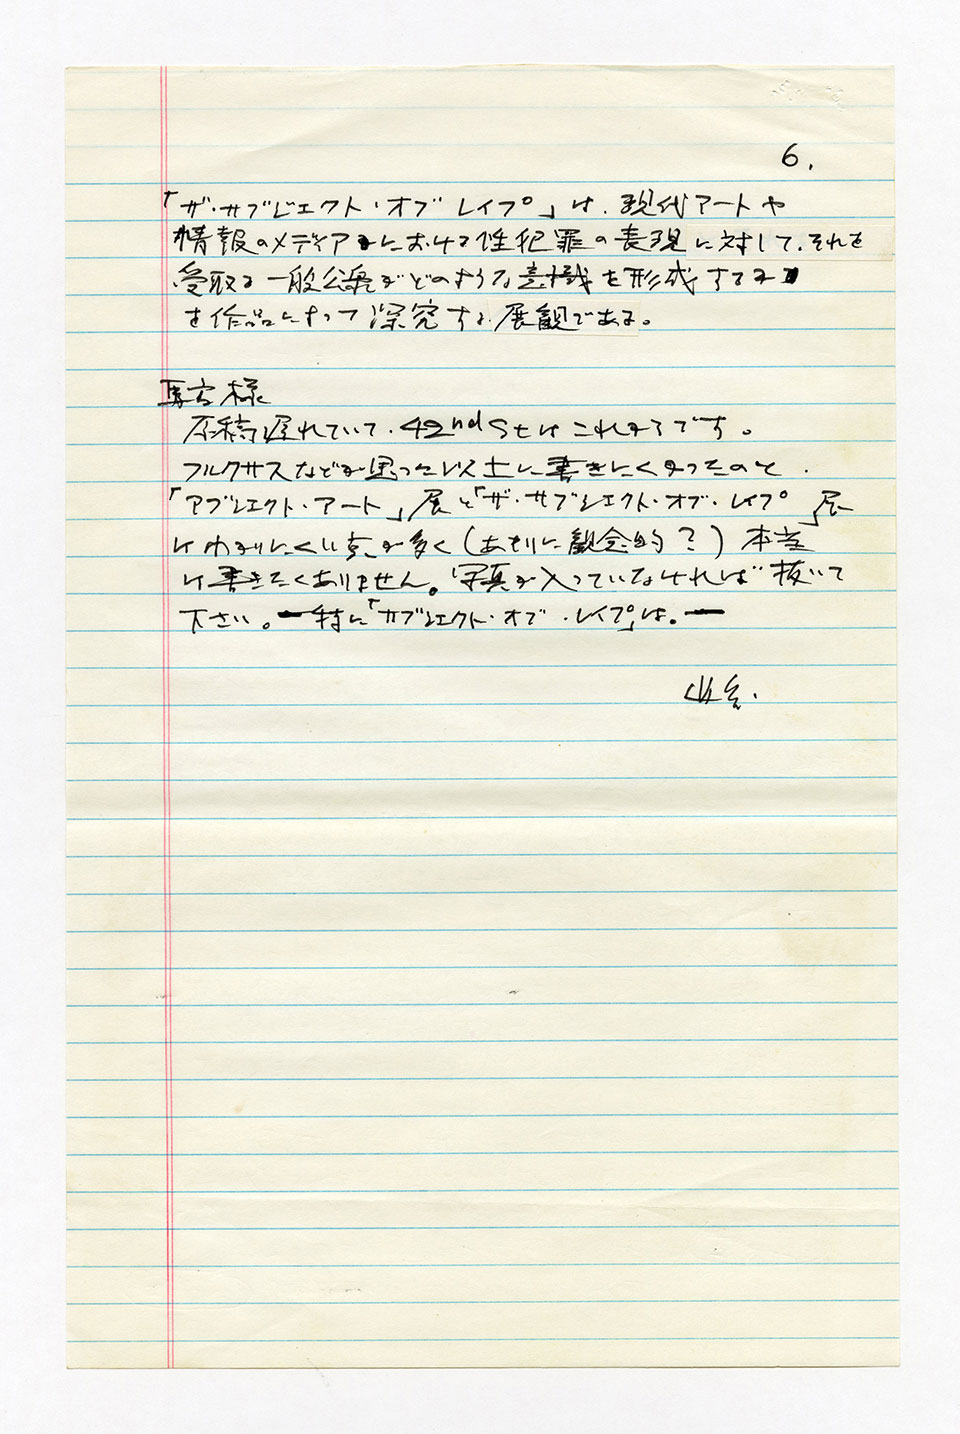 6.
「ザ・サブジェクト・オブ・レイプ」は、現代アートや
情報のメディアにおける性犯罪の表現に対して、それを
受取る一般公衆がどのような意識を形成するか
を作品によって深究する展観である。
様
原稿遅れていて、42nd Stはこれからです。
フルクサスなどが思った以上に書きにくかったのと、
「アブジェクト・アート」展と「ザ・サブジェクト・オブ・レイプ」展
はわかりにくい点が多く(あまりに観念的?)本当
は書きたくありません。写真が入っていなければ抜いて
下さい。ー特に「サブジェクト・オブ・レイプ」は。ー